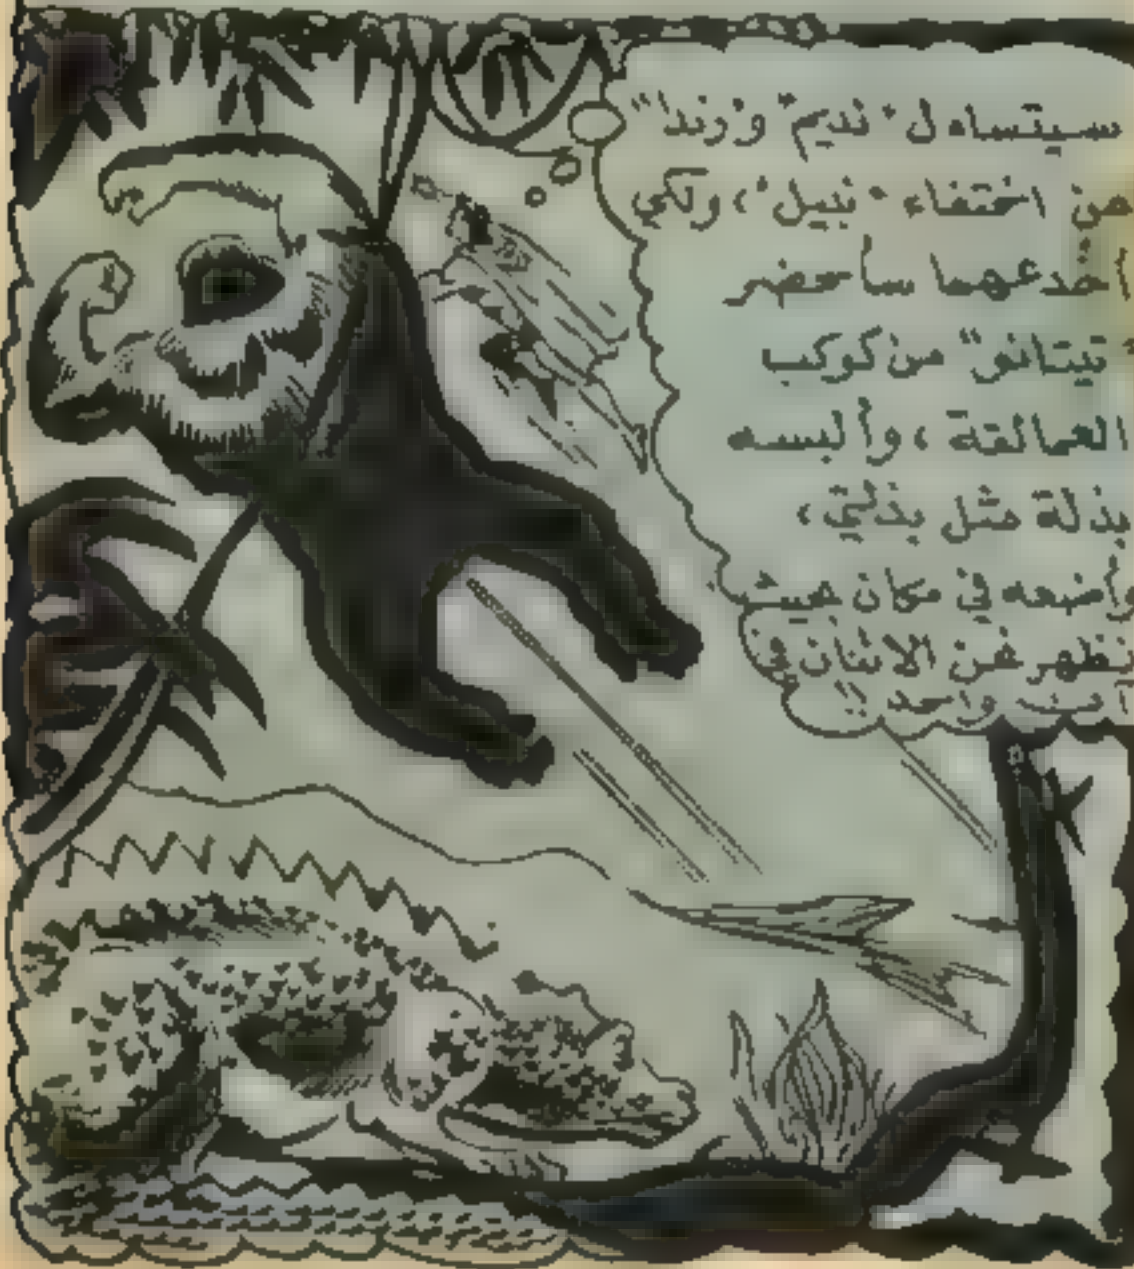 سيتساءل "نديم" و"رندا"
من اختفاء "نبيل"، ولكي
اخدعهما سأحضر
"تيتانو" من كوكب
العمالقة، وألبسه
بذلة مثل بذلتي،
وأضعه في مكان حيث
نظهر نحن الاثنان في
آن واحد !!